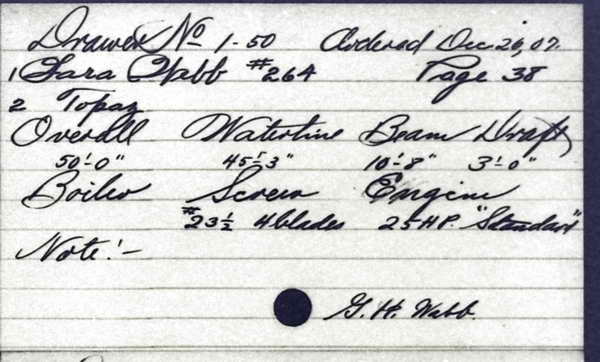 Drawer No 1-50 Ordered Dec 26, 07.
1 Sara Webb #264 Page 38
2 Topaz
Overall Waterline Beam Draft
50'-0" 45'-3" 10'-8" 3'-0"
Boiler Screw Engine
#23½ 4 blades 25 H.P. "Standard"
Note:-
G. H. Webb.